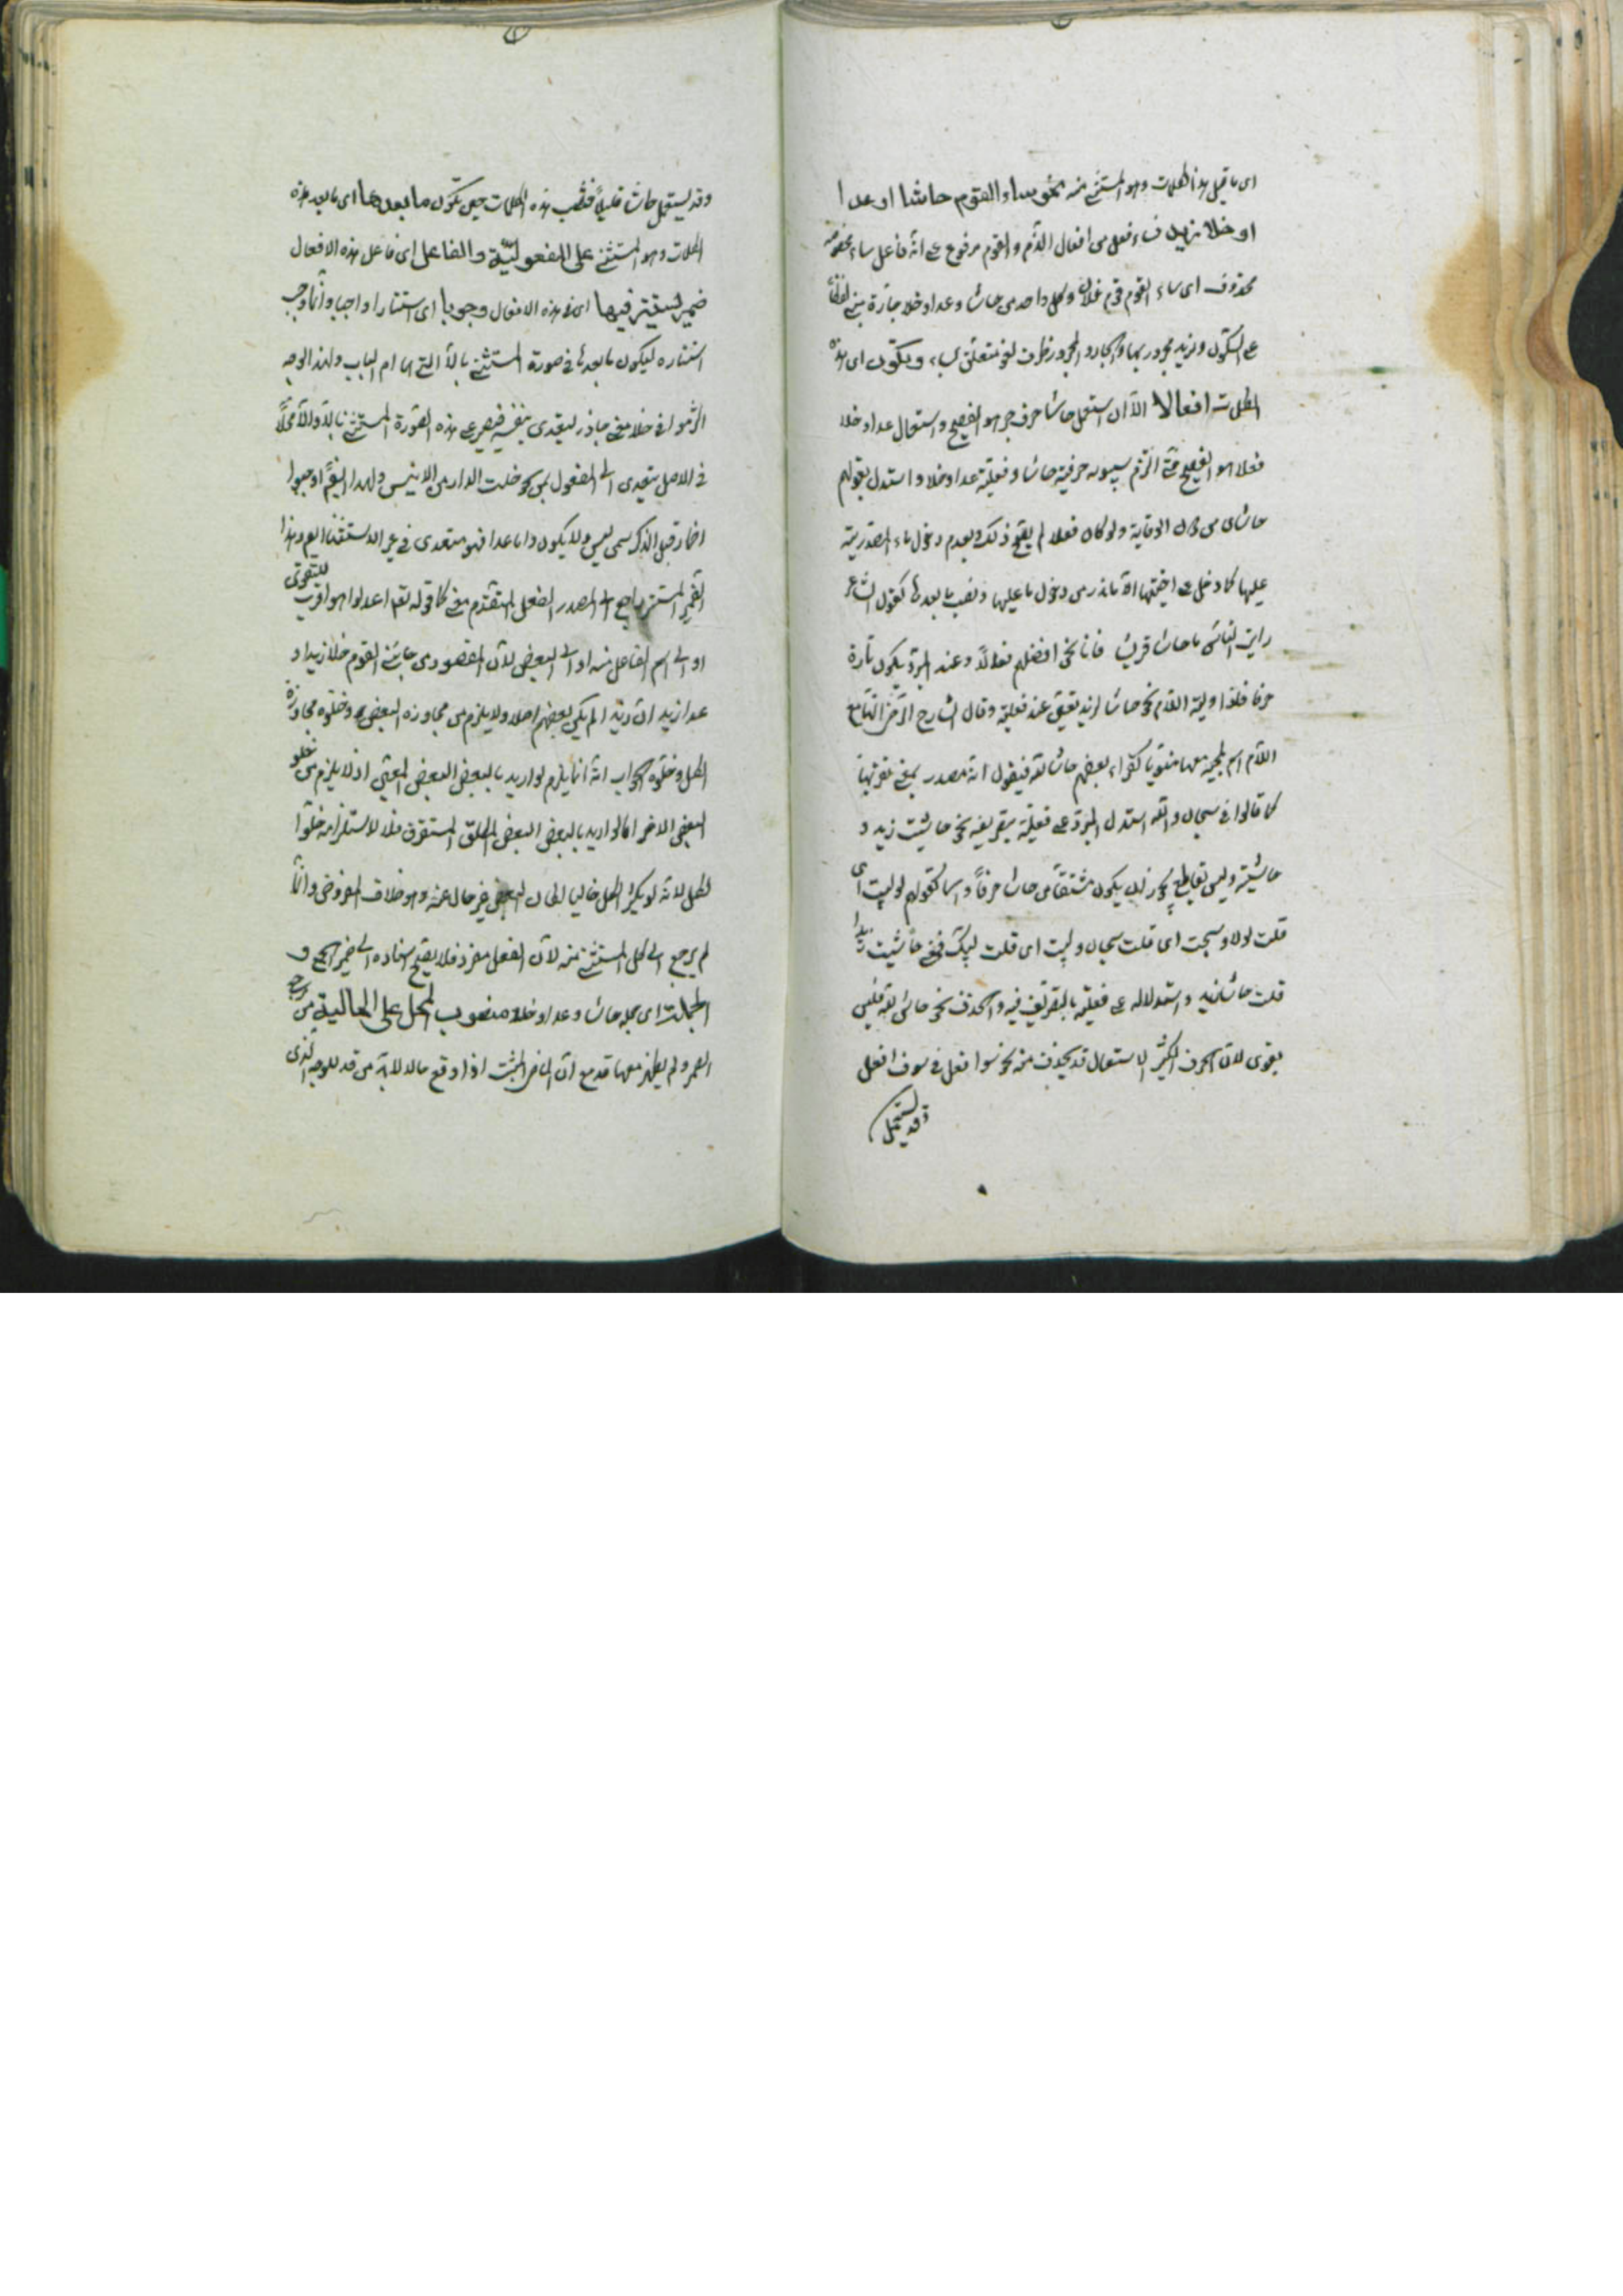 اى ما قبل هذه الكلمات وهو المستثنى منه نحو ساء القوم حاشا او عدا
او خلا زيد فساء فعل من افعال الذم والقوم مرفوع على انه فاعل ساء مخصوصه
محذوف اى ساء القوم قوم فلان وكل واحد من حاشا وعدا وخلا جارة مبنى لفظا
على السكون وزيد مجرور بها والجار والمجرور ظرف لغو متعلق بساء ويكون اى هذه
الكلمات افعالا الا ان استعمال حاشا حرف جر هو الفصيح واستعمال عدا وخلا
فعلا هو الفصيح حتى التزم سيبويه حرفية حاشا وفعلية عدا وخلا واستدل بقولهم
حاشاى من دون الوقاية ولو كان فعلا لم يقع ذلك وبعدم دخول ماء المصدرية
عليها كما دخل على اختيها الا ما ندر من دخول ما عليها ونصب ما بعدها كقول الشاعر
رايت الناس ما حاشا قريشا فانا نحن افضلهم فعالا وعند المبرد يكون تارة
حرفا فلذا ولية اللام نحو حاشا لزيد تعين عنده فعليته وقال الشارح الرضى انها مع
اللام اسم لمجيئه معها منونا كقراءة بعضهم حاشا لله فنقول انه مصدر بمعنى تنزيها
كما قالوا فى سبحان الله استدل المبرد على فعليته بتصريفه نحو حاشيت زيد و
حاشيته وليس بقاطع يجوز ان يكون مشتقا من حاشا حرفا واسما كقولهم لوليت اى
قلت لولا وسبحت اى قلت سبحان ولبيت اى قلت لبيك فمعنى حاشيت زيدا
قلت حاشا زيد واستدلاله على فعليته بالتصريف فيه والحذف نحو حاش لله فليس
بقوى لان الحرف الكثير الاستعمال قد يحذف منه نحو سوا فعل فى سوف افعل
وقد يستعمل
وقد يستعمل حاشا قليلا فنصب هذه الكلمات حين تكون ما بعدها اى ما بعد هذه
الكلمات وهو المستثنى على المفعولية والفاعل اى فاعل هذه الافعال
ضمير يستتر فيها اى فى هذه الافعال وجوبا اى استتارا واجبا وانما وجب
استتاره ليكون ما بعدها فى صورة المستثنى بالا التى هى ام الباب ولهذا الوجه
التزموا فى خلا معنى جاوز ليتعدى بنفسه فيصير على هذه الصورة المستثنى بالا والا فخلا
فى الاصل يتعدى الى المفعول بمن نحو خلت الدار من الانيس ولهذا ايضا اوجبوا
اضمار قبل الذكر سمى ليس ولا يكون واما عدا فهو متعدى فى غير الاستثناء ايضا وهذا
الضمير المستتر راجع الى المصدر الفعل المتقدم معنى كما قوله تعالى اعدلوا هو اقرب للتقوى
او الى اسم الفاعل منه او الى البعض لان المقصود من جائنى القوم خلا زيدا و
عدا زيدا ان زيدا لم يكن بعضهم اصلا ولا يلزم من مجاوزه البعض وخلوه مجاوزة
الكل وخلوه الجواب انه انما يلزم لو اريد بالبعض البعض المعين اذ لا يلزم من خلو
البعض الاخر اما لو اريد بالبعض البعض المطلق المستغرق فلا لاستلزامه خلو
الكل لانه لو يكن الكل خاليا لكان البعض غير خال عنه وهو خلاف المفروض وانما
لم يرجع الى كل المستثنى منه لان الفعل مفرد فلا يصح اسناده الى ضمير الجمع و
الجملة اى جملة حاشا وعدا وخلا منصوب المحل على الحالية من
الضمير ولم يظهر معها قد مع ان الماضى المثبت اذا وقع حالا لابد من قد للوجه الذى